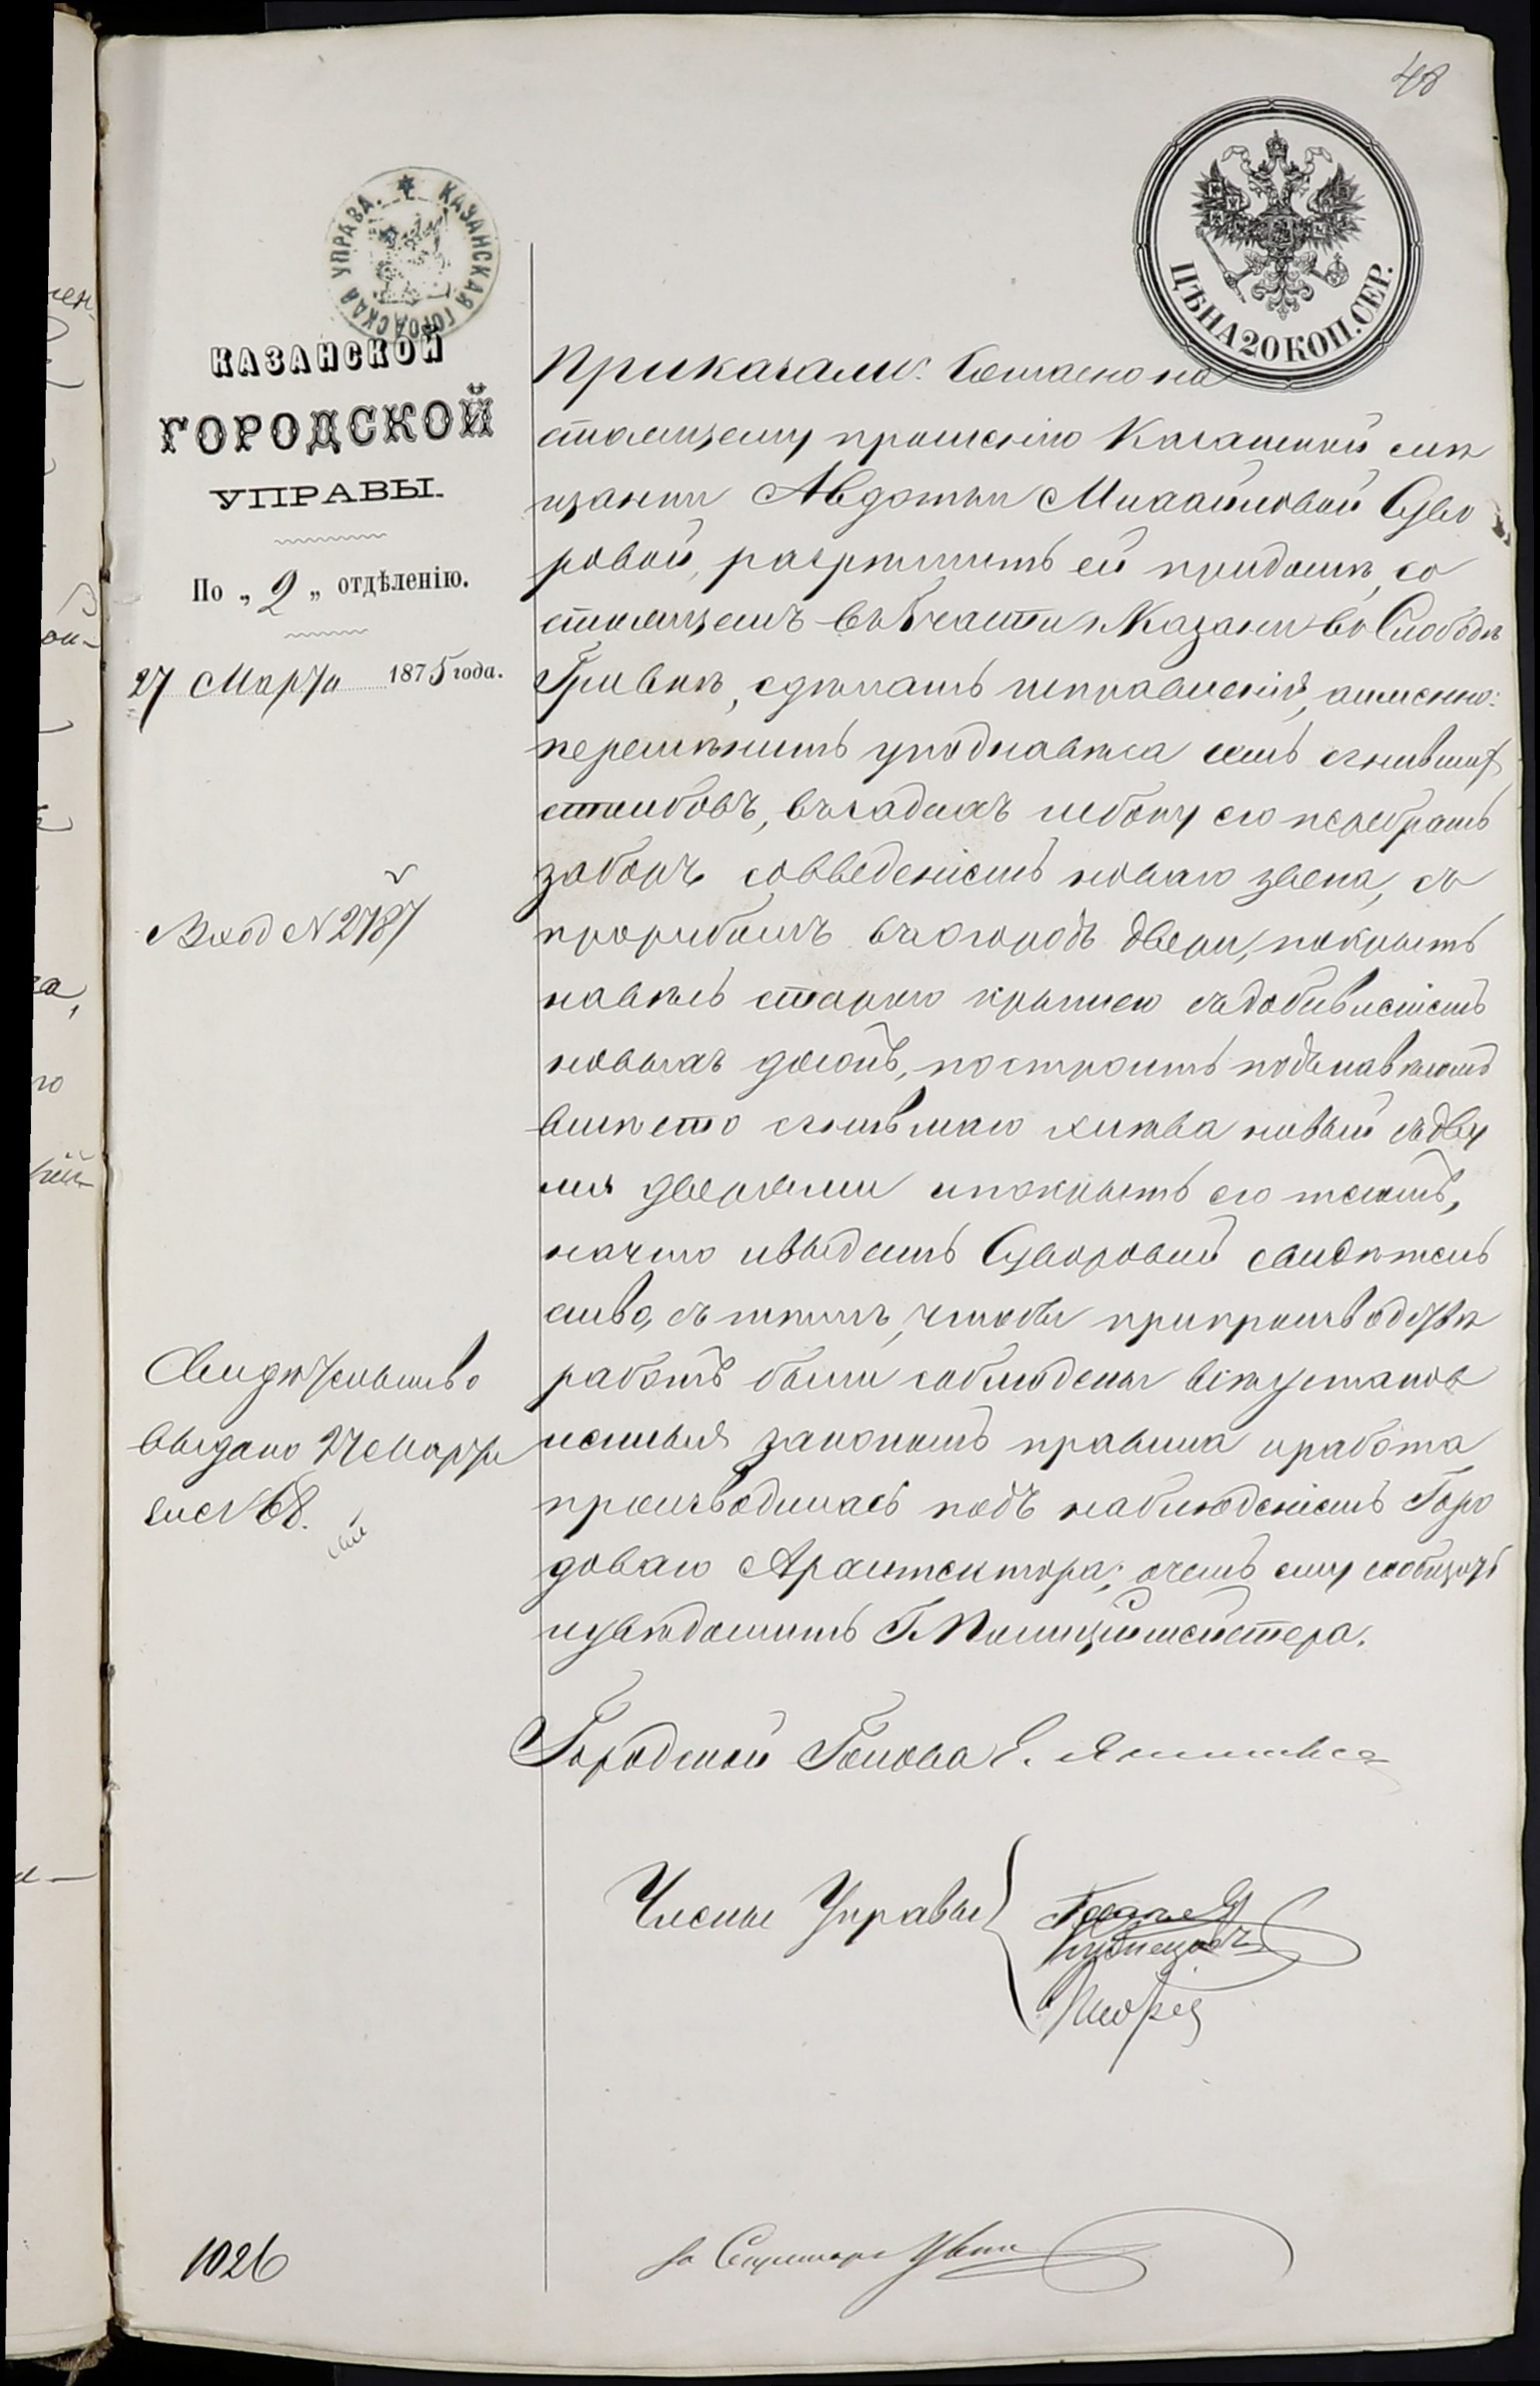 48
КАЗАНСКАЯ ГОРОДСКАЯ УПРАВА.
ЦѢНА 20 КОП. СЕР.
КАЗАНСКОЙ
ГОРОДСКОЙ
УПРАВЫ.
По „2„ отдѣленію.
27 Марта 1875 года.
Вход N 2787
Свидѣтельство
выдано 27 Марта
за N 68.
1026
Приказали: Согласно на
стоящему прошенію Казанской мѣ
щанки Авдотьи Михайловой Суво
ровой, разрѣшить ей придомѣ, со
стоящемъ въ 6 части г. Казани во Слободѣ
Гривкѣ, сдѣлать исправленія, аименно:
перемѣнить уподнавѣса семь сгнившихъ
столбовъ, въ задахъ и сбоку его перебрать
заборъ совведеніемъ новаго звена, съ
прорубомъ въ огородъ двери, покрыть
навѣсъ старою крышею съ добавленіемъ
новыхъ досокъ, построить подънавѣсомъ
вмѣсто сгнившаго хлѣва новый съ дву
мя дверями и покрыть его тесомъ,
на что и выдать Суворовой свидѣтель
ство, съ тѣмъ, чтобы при производствѣ
работъ были соблюдены всѣ установ
ленныя закономъ правила и работа
производилась подъ наблюденіемъ Горо
доваго Архитектора; о чемъ ему сообщить
и увѣдомить Г. Полиціймейстера.
Городской Голова Е.
Члены Управы
Кузнецовъ
За Секретаря